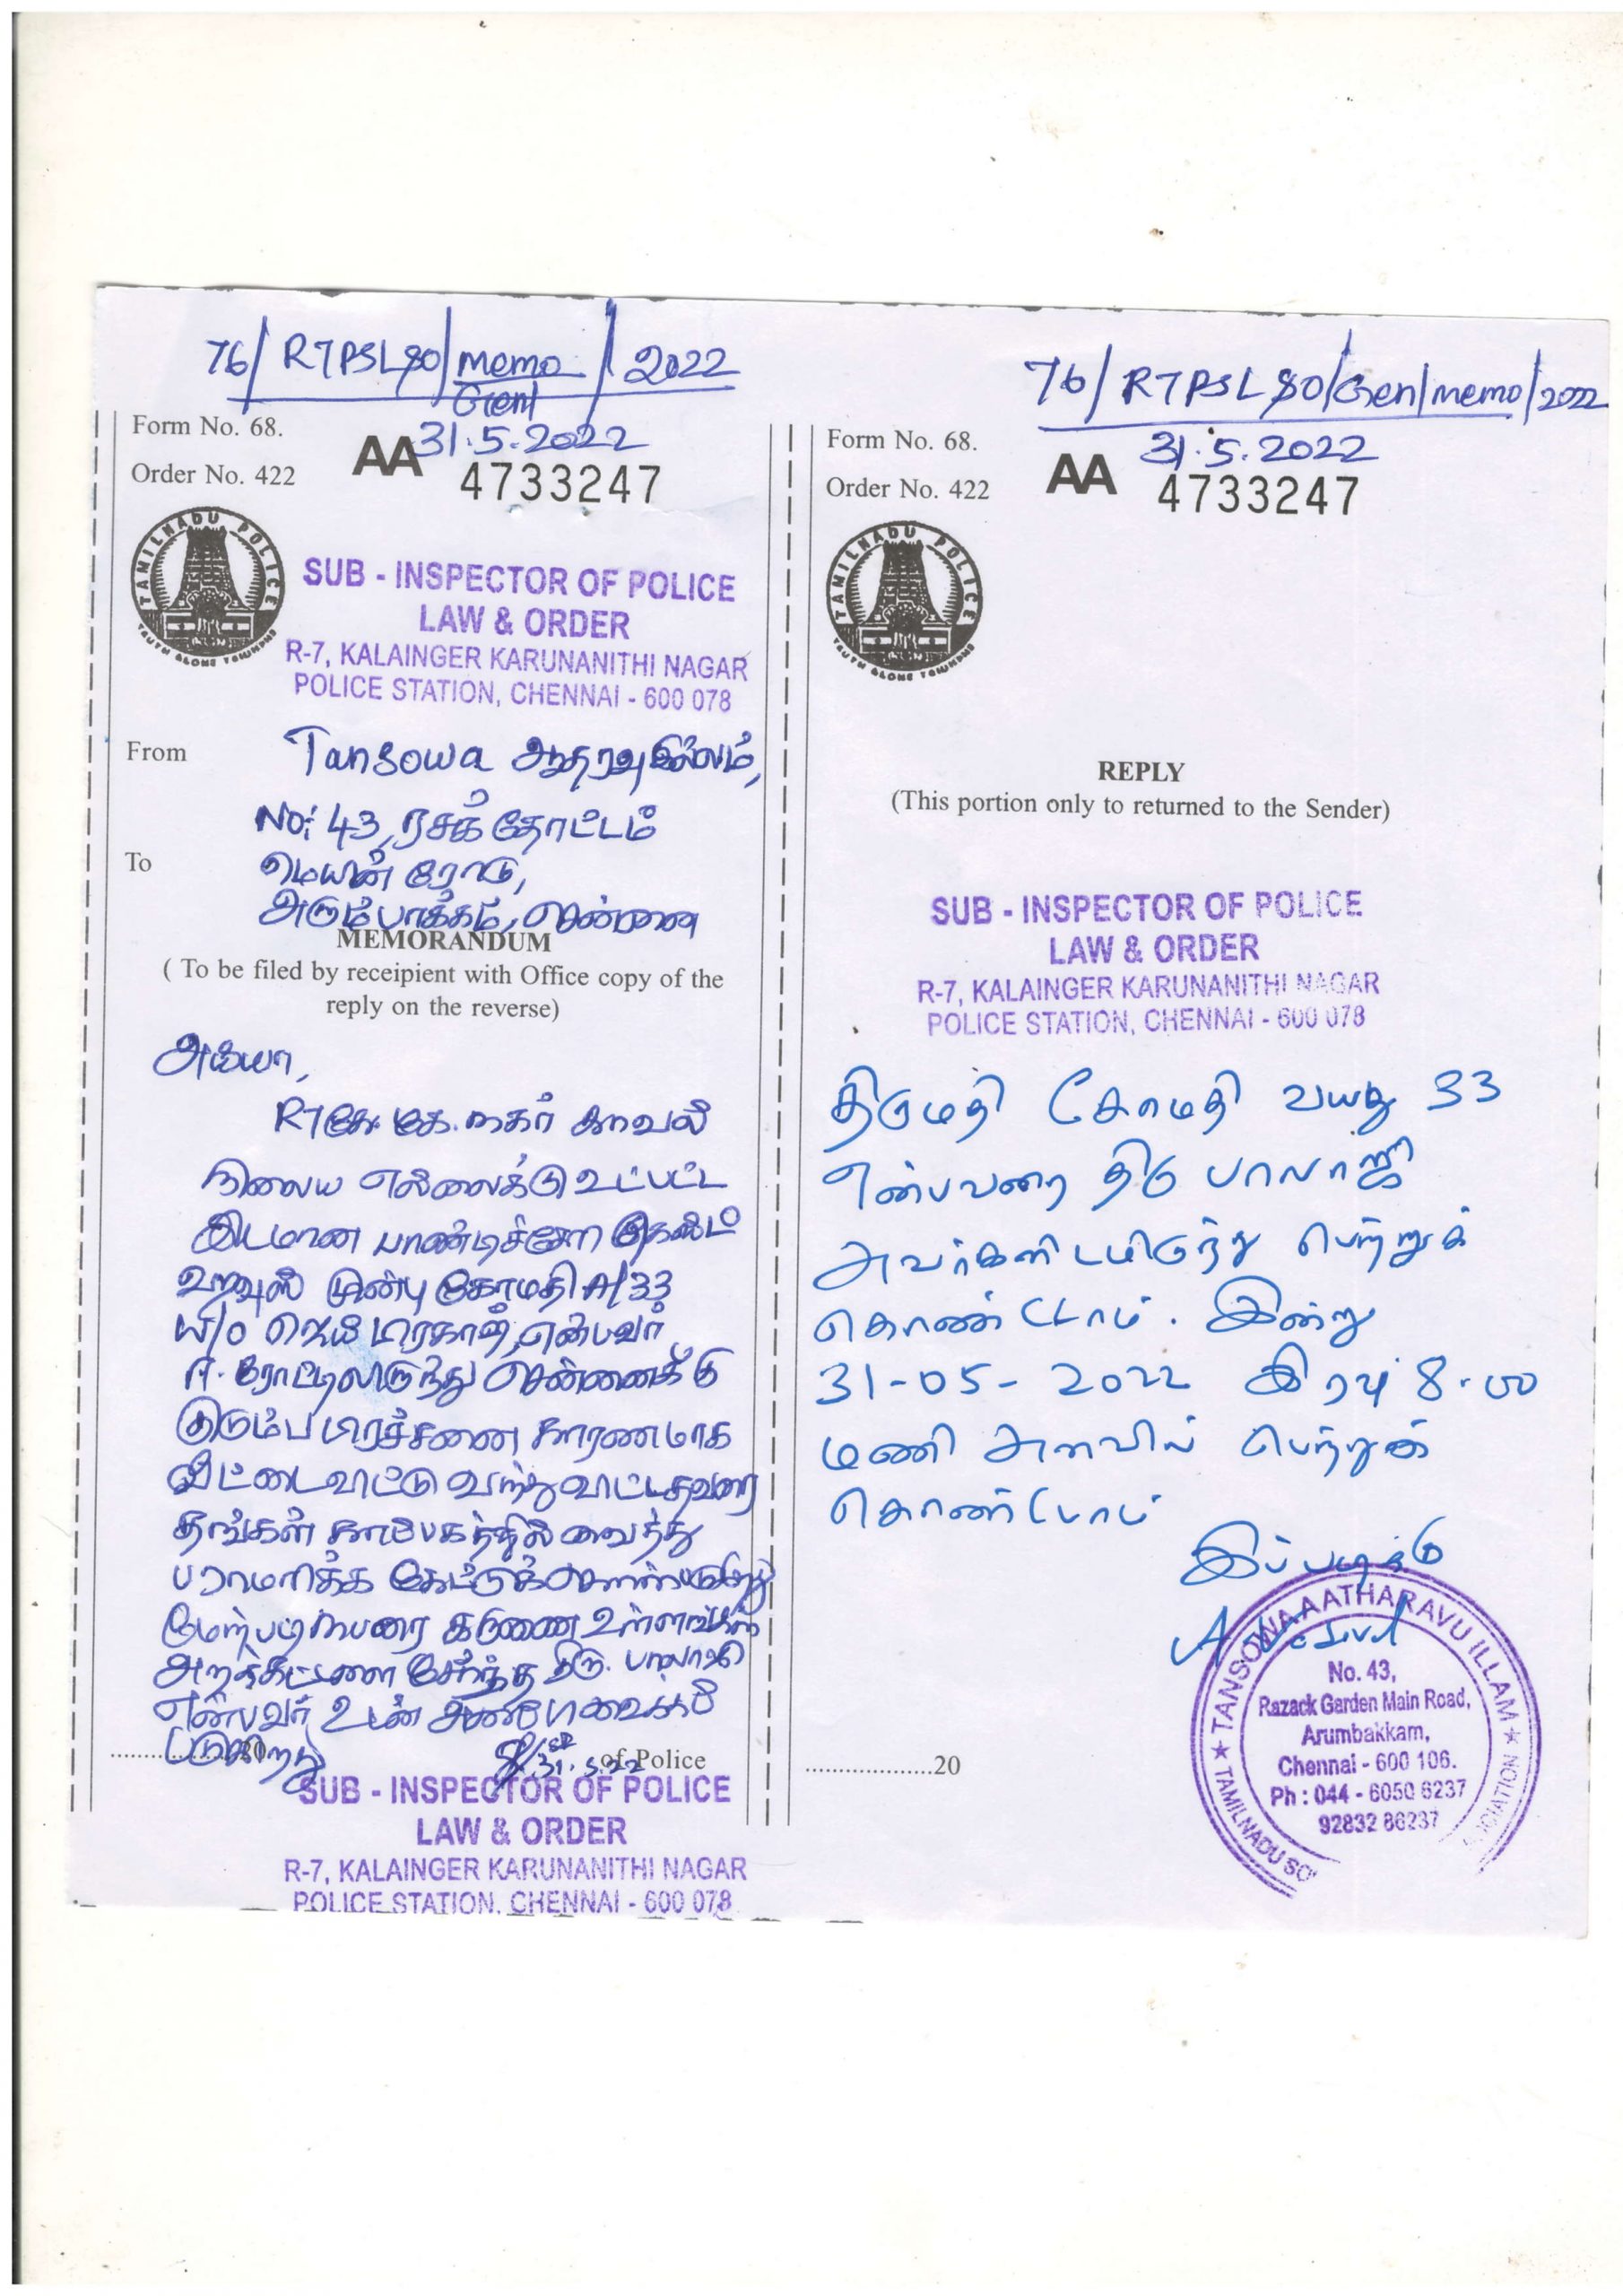 76/ R7 PS L&O/ memo / 2022
Gen
31.5.2022
Form No. 68.
Order No. 422
AA 4733247
TAMILNADU POLICE
TRUTH ALONE TRIUMPHS
SUB - INSPECTOR OF POLICE
LAW & ORDER
R-7, KALAINGER KARUNANITHI NAGAR
POLICE STATION, CHENNAI - 600 078
From
Tansowa ஆதரவு இல்லம்,
No: 43, ரசாக் தோட்டம்
To
மெயின் ரோடு,
அரும்பாக்கம், சென்னை
MEMORANDUM
( To be filed by receipient with Office copy of the
reply on the reverse)
அய்யா,
R7 கே.கே.நகர் காவல்
நிலைய எல்லைக்கு உட்பட்ட
இடமான பாண்டிச்சேரி கெஸ்ட்
ஹவுஸ் முன்பு கோமதி A/33
W/o ஜெய் பிரகாஷ், என்பவர்
ஈ.ரோட்டிலிருந்து சென்னைக்கு
குடும்ப பிரச்சனை காரணமாக
வீட்டைவிட்டு வந்து விட்டதவரை
தங்கள் காப்பகத்தில் வைத்து
பராமரிக்க கேட்டுக்கொள்ளப்படுகிறது
மேற்படி நபரை கருணை உள்ளங்கள்
அறக்கட்டளை சேர்ந்த திரு. பாலாஜி
என்பவர் உடன் அனுப்பி வைக்கப்
படுகிறது
31.5.22
of Police
SUB - INSPECTOR OF POLICE
LAW & ORDER
R-7, KALAINGER KARUNANITHI NAGAR
POLICE STATION, CHENNAI - 600 078
76/ R7 PS L&O/Gen/memo/2022
31.5.2022
Form No. 68.
Order No. 422
AA 4733247
TAMILNADU POLICE
TRUTH ALONE TRIUMPHS
REPLY
(This portion only to returned to the Sender)
SUB - INSPECTOR OF POLICE
LAW & ORDER
R-7, KALAINGER KARUNANITHI NAGAR
POLICE STATION, CHENNAI - 600 078
திருமதி கோமதி வயது 33
என்பவரை திரு பாலாஜி
அவர்களிடமிருந்து பெற்றுக்
கொண்டோம். இன்று
31-05-2022 இரவு 8.00
மணி அளவில் பெற்றுக்
கொண்டோம்
இப்படிக்கு
TANSOWA AATHARAVU ILLAM
No. 43,
Razack Garden Main Road,
Arumbakkam,
Chennai - 600 106.
Ph : 044 - 6050 6237
92832 86237
TAMILNADU
....................20